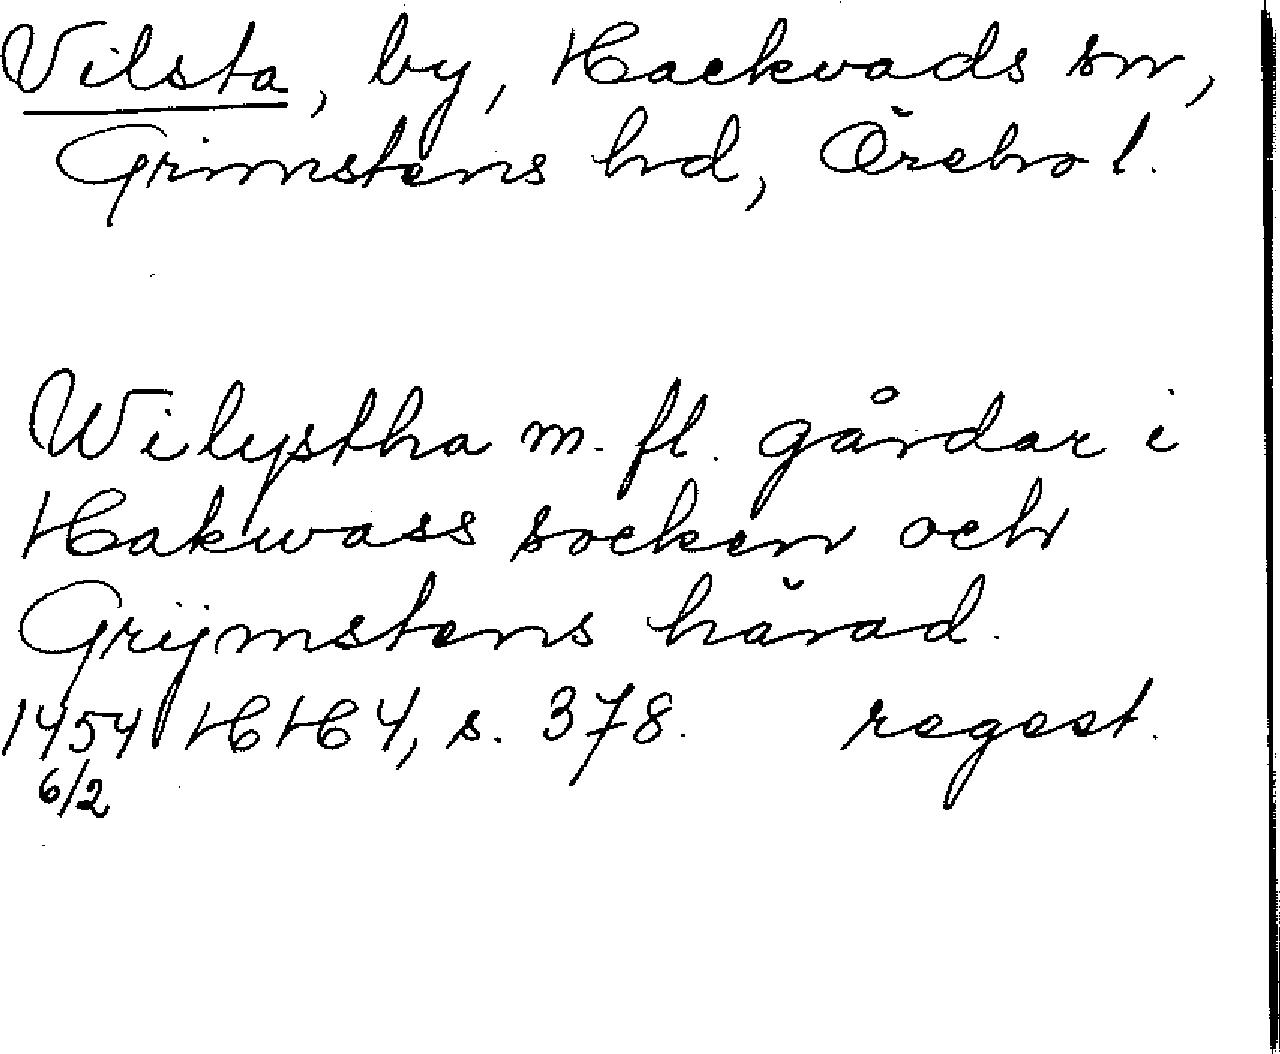 Vilsta, by, Hackvads sn,
Grimstens hd, Örebro l.
Wilystha m. fl. gårdar i
Hakwass socken och
Grijmstens härad.
1454 HH 4, s. 378. regest.
6/2